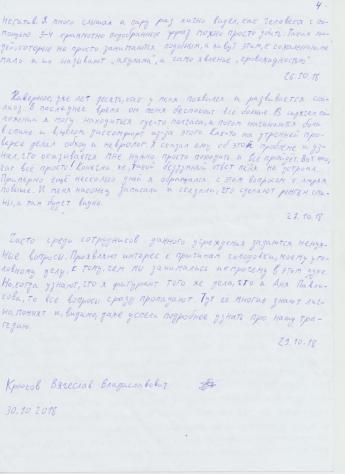 4.
негатив. Я много слышал и пару раз лично видел, как человека с по-
мощью 3-4 грамотно подобранных фраз можно просто убить. Таких лю-
дей, которые не просто занимаются подобным, а живут этим, к сожалению не
мало и их называют "акулами", а само явление "кровожадностью"
26.10.18
Наверное, уже лет десять, как у меня появился и развивается ско-
лиоз. В последнее время он меня беспокоит всё больше. В сидячем по-
ложении я могу находиться где-то полчаса, а потом начинаются боли
в спине и внутренний дискомфорт из-за этого. Как-то на утренней про-
верке делал обход и невролог. Я сказал ему об этой проблеме и уз-
нал, что оказывается мне нужно просто походить и всё пройдёт. Вот так,
как всё просто! Конечно же, такой бездушный ответ меня не устроил.
Примерно ещё несколько дней я обращался с этим вопросом к
И меня наконец записали и сказали, что сделают рентген спи-
ны, а там будет видно.
27.10.18
Часто среди сотрудников данного учреждения задаются ненуж-
ные вопросы. Проявляют интерес к причинам голодовки, моему уго-
ловному делу, к тому, чем мы занимались и почему в этом деле.
Но когда узнают, что я фигурант того же дела, что и Аня Павли-
кова, то все вопросы сразу пропадают. Тут её многие знают лич-
но, помнят и, видимо, даже успели подробнее узнать про нашу тра-
гедию.
29.10.18
Крюков Вячеслав Владиславович
30.10.2018